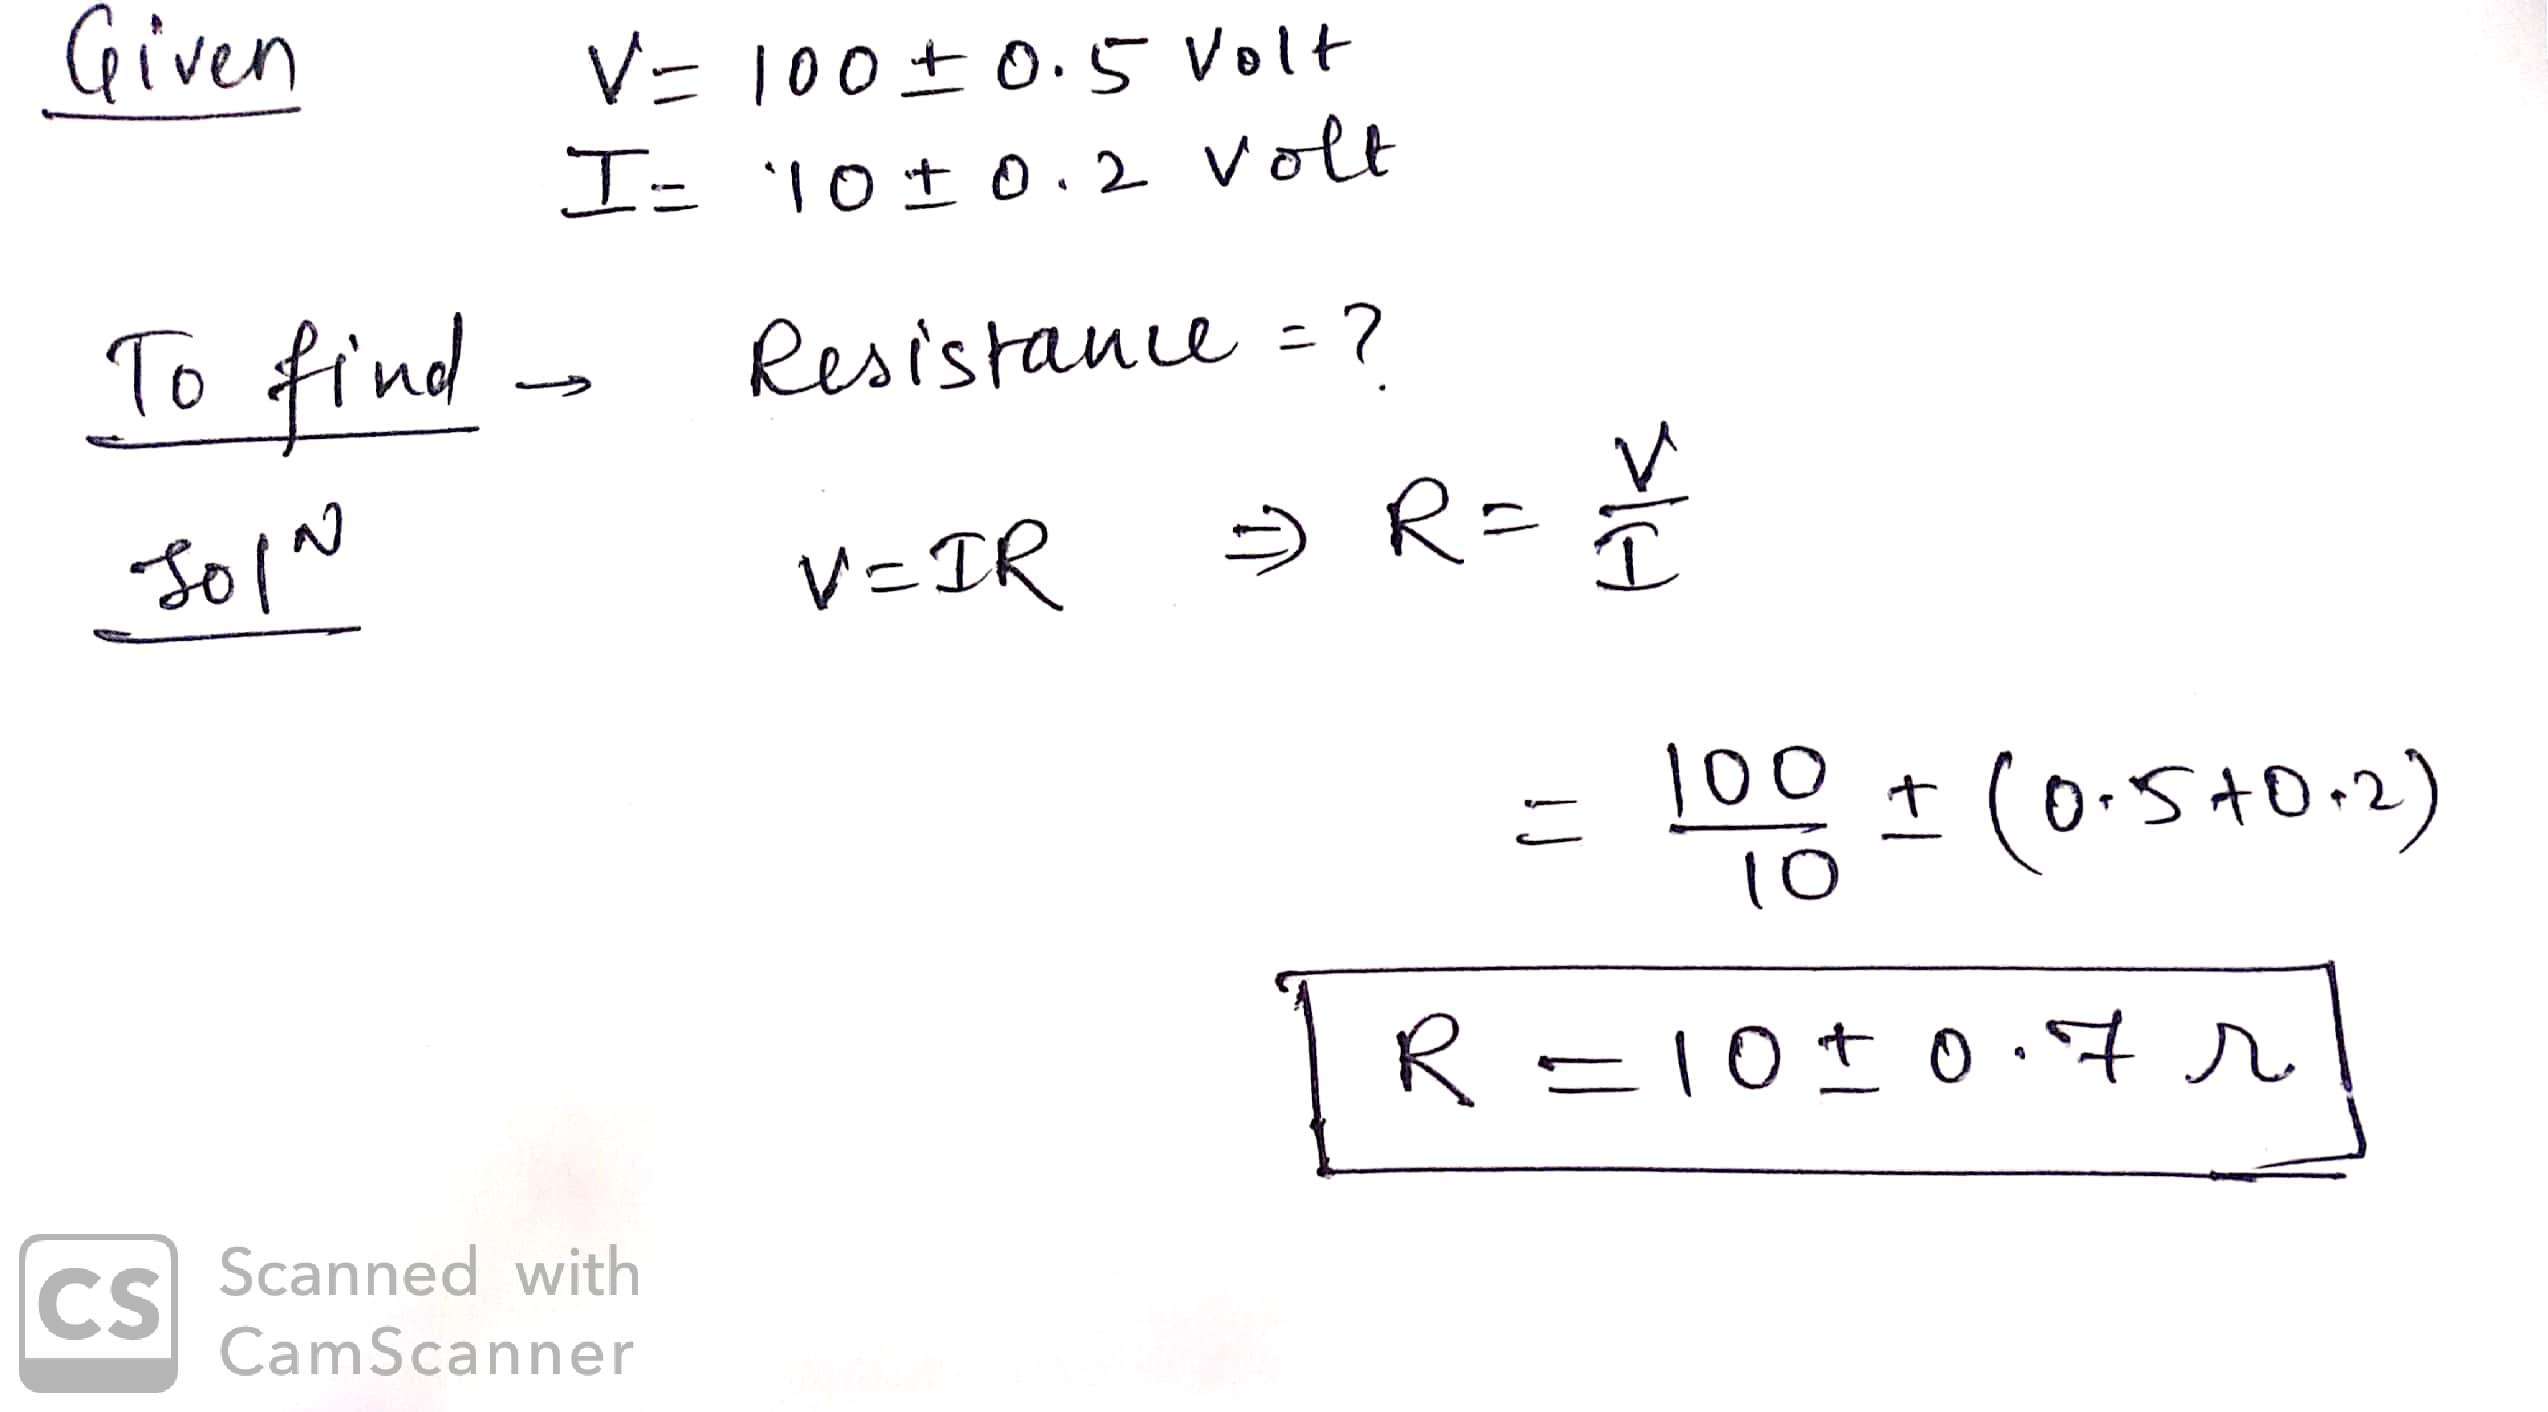 Given V = 100 ± 0.5 Volt
I = 10 ± 0.2 Volt
To find → Resistance = ?
Solᴺ V = IR ⇒ R = V/I
= 100/10 ± (0.5 + 0.2)
R = 10 ± 0.7 Ω
CS Scanned with
CamScanner